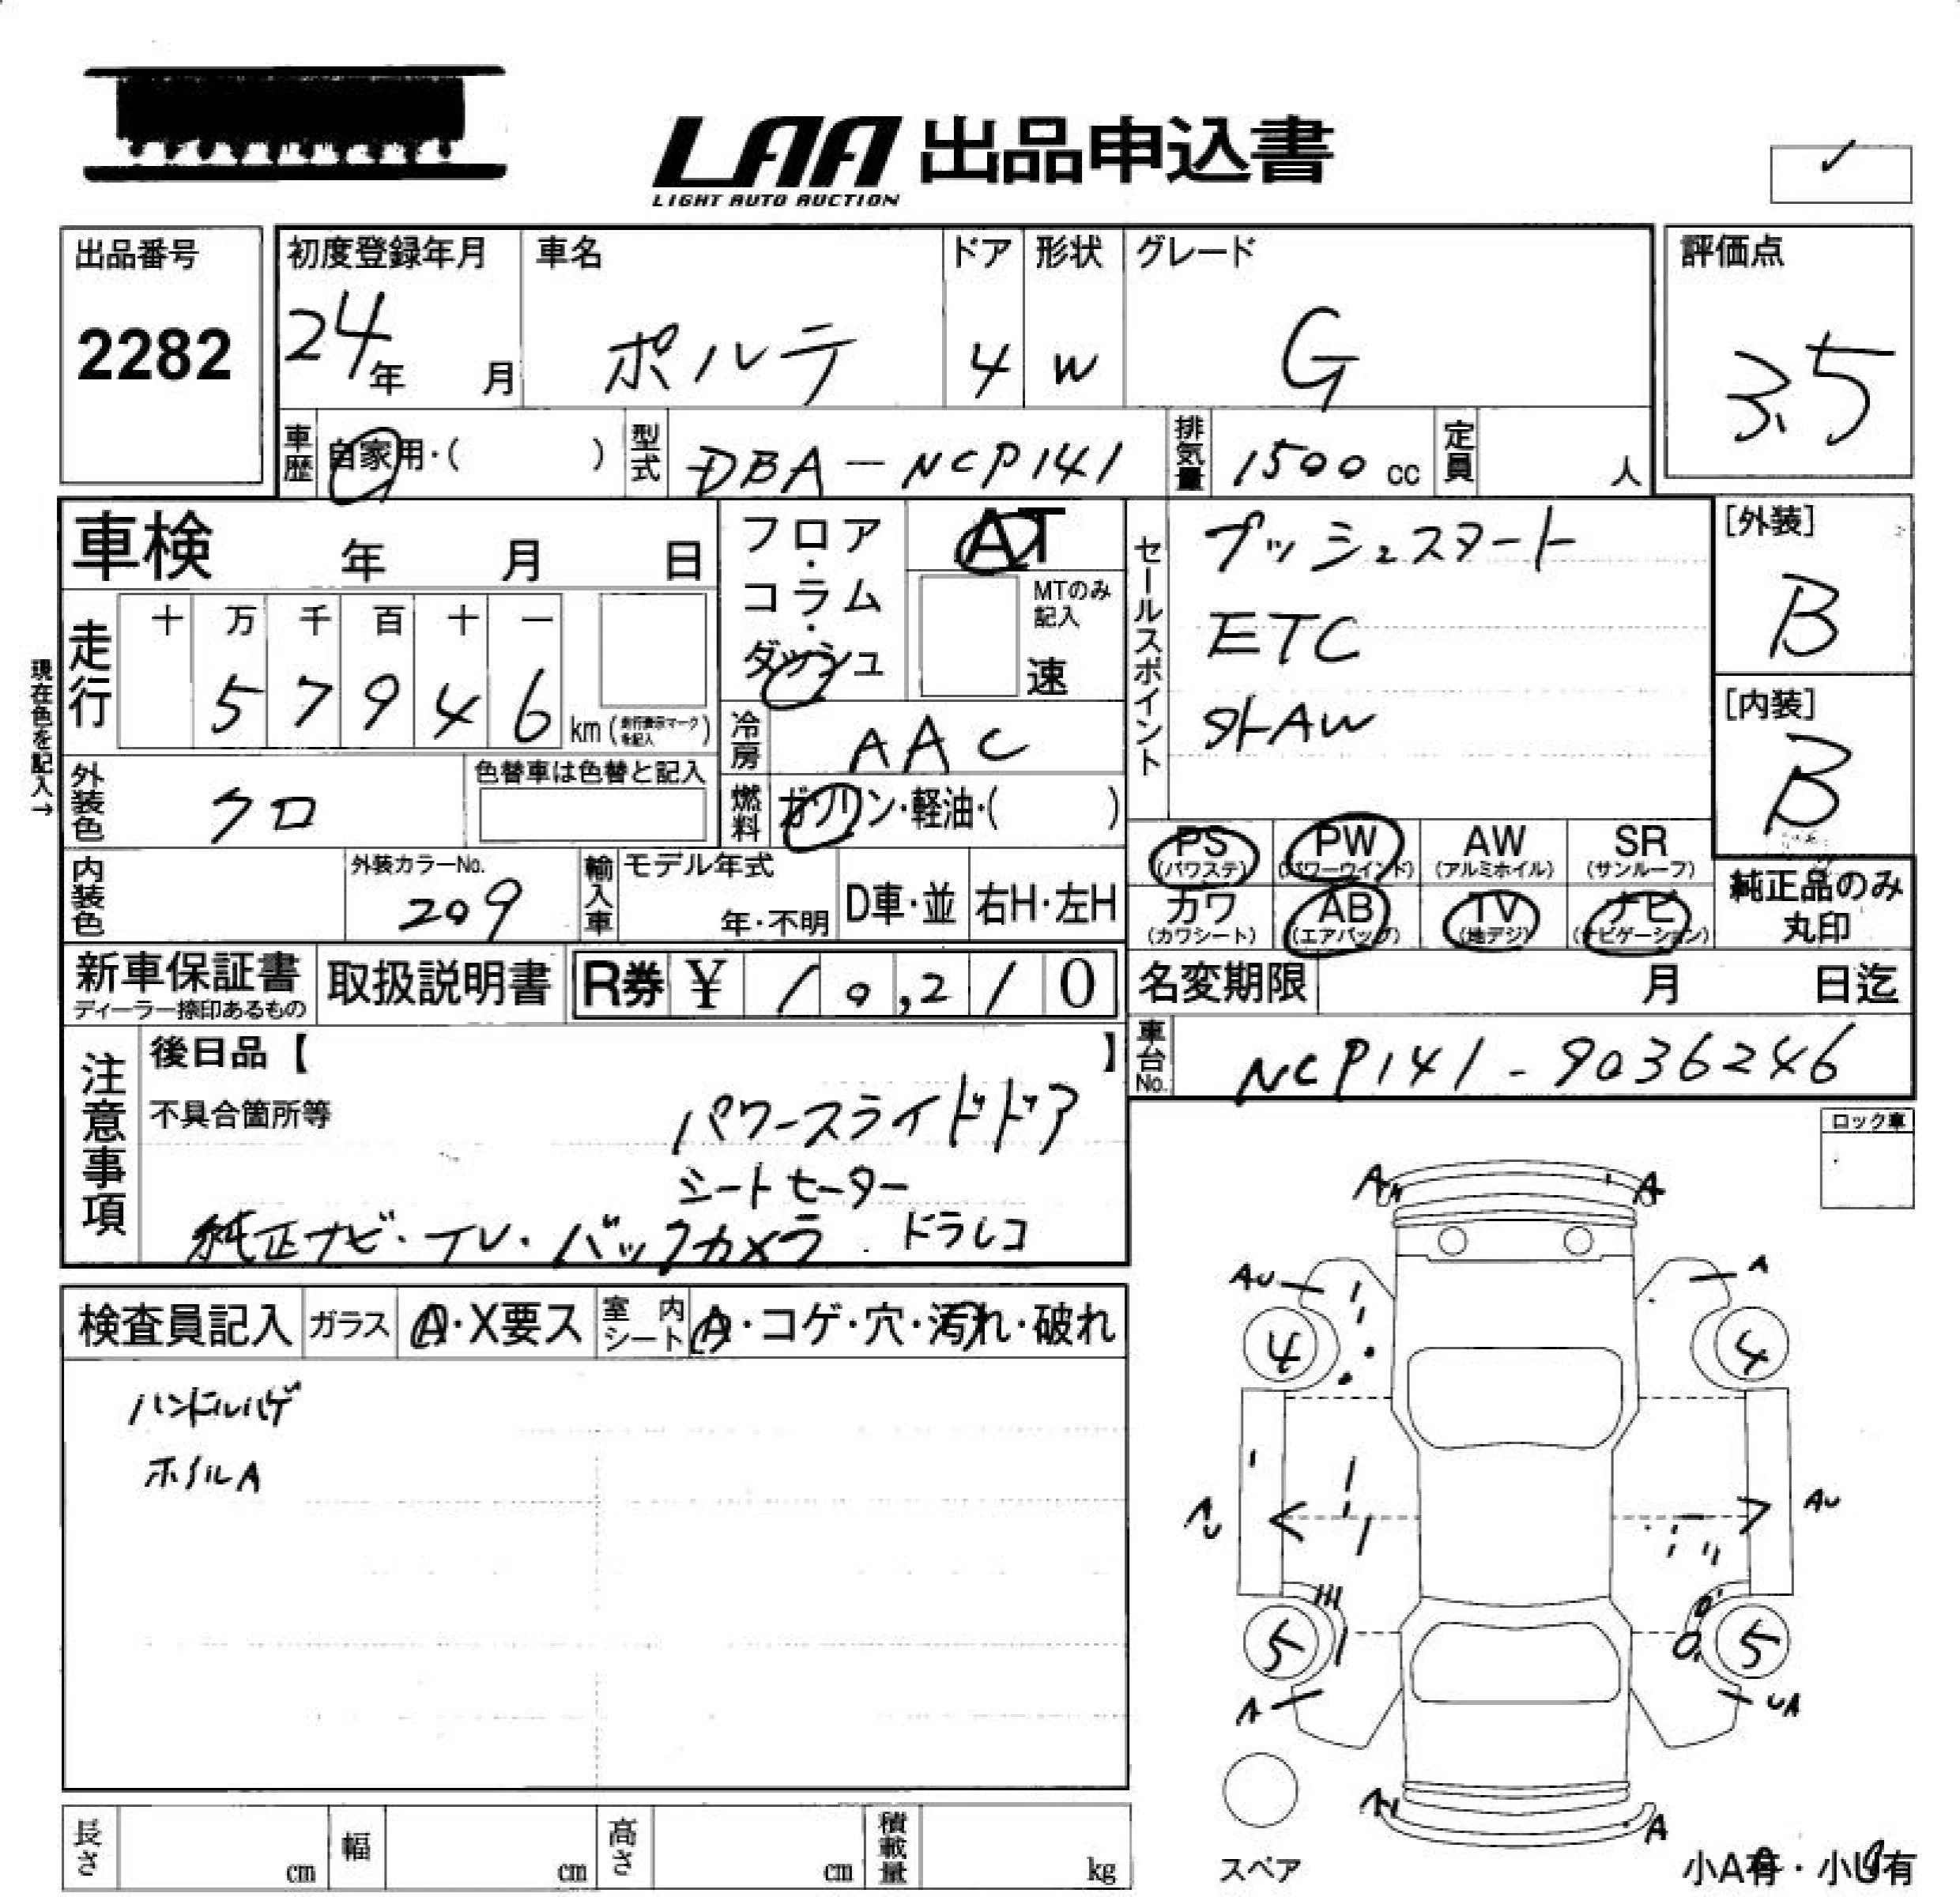 LAA 出品申込書
LIGHT AUTO AUCTION
出品番号
2282
初度登録年月
24年 月
車名
ポルテ
ドア
4
形状
W
グレード
G
評価点
3.5
車歴
自家用・( )
型式
DBA-NCP141
排気量
1500 cc
定員
人
車検 年 月 日
フロア・コラム・ダッシュ
AT
MTのみ記入
速
セールスポイント
プッシュスタート
ETC
外AW
[外装]
B
[内装]
B
現在色を記入→
走行
十 万 千 百 十 一
5 7 9 4 6 km (走行表示マークを記入)
冷房
AAC
外装色
クロ
色替車は色替と記入
燃料
ガソリン・軽油・( )
内装色
外装カラーNo.
209
輸入車
モデル年式
年・不明
D車・並
右H・左H
PS
(パワステ)
PW
(パワーウインド)
AW
(アルミホイル)
SR
(サンルーフ)
カワ
(カワシート)
AB
(エアバッグ)
TV
(地デジ)
ナビ
(ナビゲーション)
純正品のみ
丸印
新車保証書
ディーラー捺印あるもの
取扱説明書
R券 ¥ 10,210
名変期限 月 日迄
車台No.
NCP141-9036246
注意事項
後日品【 】
不具合箇所等
パワースライドドア
シートセーター
純正ナビ・TV・バックカメラ ドラレコ
ロック車
検査員記入
ガラス
A・X要ス
室内シート
A・コゲ・穴・汚れ・破れ
ハンドルハゲ
ホイルA
A A
AU A
4 4
AU
5 5
A UA
A
スペア
小A有・小U有
長さ cm
幅 cm
高さ cm
積載量 kg